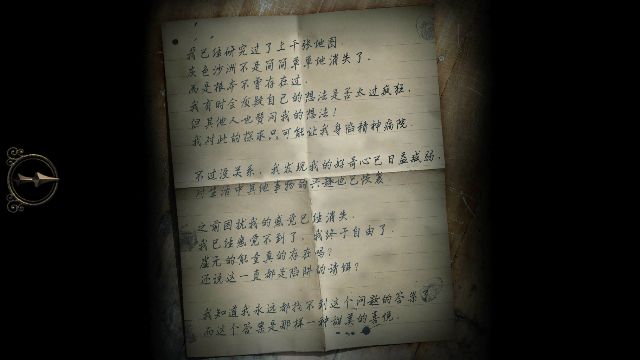 我已经研究过了上千张地图.
灰色沙洲不是简简单单地消失了.
而是根本不曾存在过.
我有时会质疑自己的想法是否太过疯狂,
但其他人也赞同我的想法!
我对此的探求只可能让我身陷精神病院.
不过没关系,我发现我的好奇心已日益减弱,
对生活中其他事物的兴趣也已恢复
之前困扰我的感觉已经消失.
我已经感觉不到了,我终于自由了.
虚元的能量真的存在吗?
还说这一直都是陷阱的诱惧?
我知道我永远都找不到这个问题的答案了
而这个答案是那样一种甜美的喜悦.